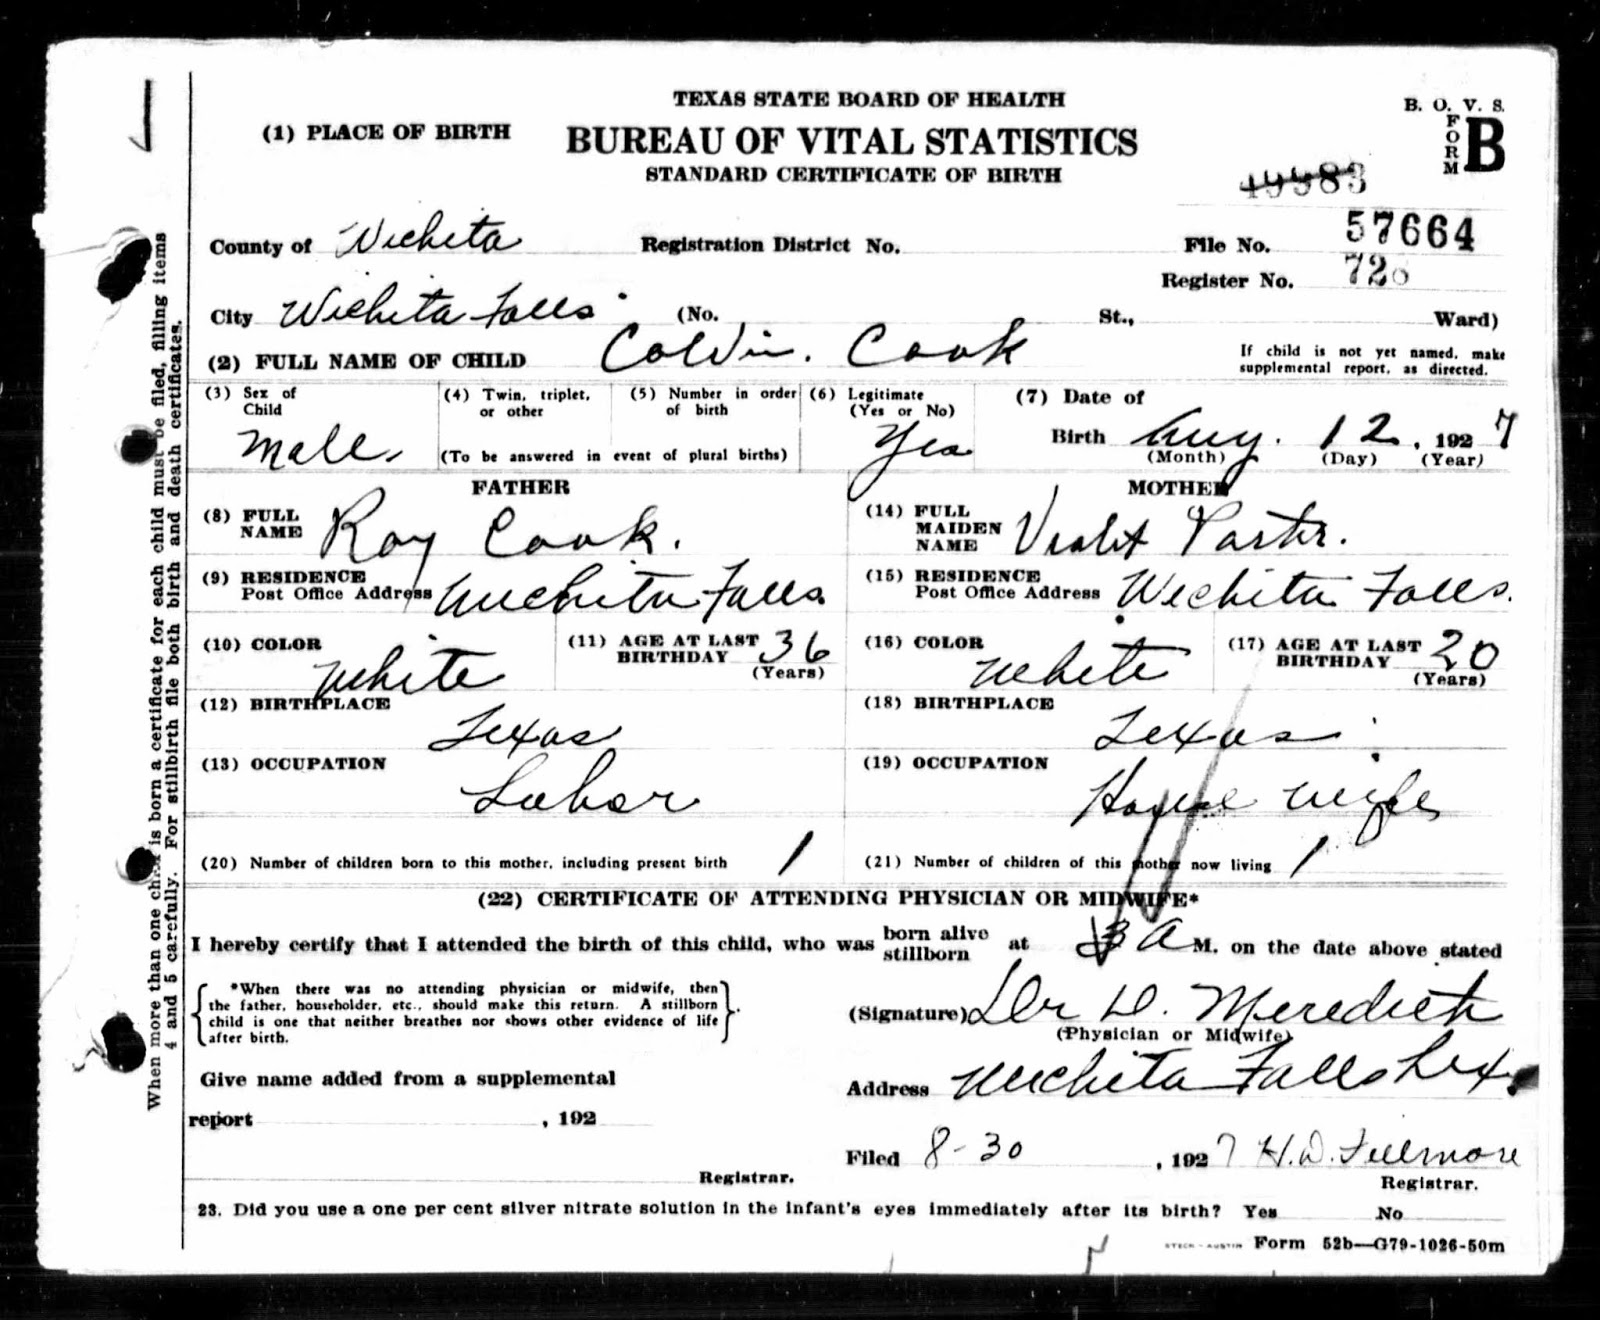 TEXAS STATE BOARD OF HEALTH
B. O. V. S.
(1) PLACE OF BIRTH
BUREAU OF VITAL STATISTICS
FORM B
STANDARD CERTIFICATE OF BIRTH
49983
County of Wichita Registration District No. File No. 57664
Register No. 728
City Wichita Falls (No. St., Ward)
(2) FULL NAME OF CHILD Colvin. Cook
If child is not yet named, make
supplemental report, as directed.
(3) Sex of Child Male
(4) Twin, triplet, or other
(5) Number in order of birth
(To be answered in event of plural births)
(6) Legitimate (Yes or No) Yes
(7) Date of Birth Aug. 12, 1927
(Month) (Day) (Year)
FATHER
MOTHER
(8) FULL NAME Roy Cook.
(14) FULL MAIDEN NAME Violet Porter.
(9) RESIDENCE Post Office Address Wichita Falls.
(15) RESIDENCE Post Office Address Wichita Falls.
(10) COLOR White
(11) AGE AT LAST BIRTHDAY 36 (Years)
(16) COLOR White
(17) AGE AT LAST BIRTHDAY 20 (Years)
(12) BIRTHPLACE Texas
(18) BIRTHPLACE Texas
(13) OCCUPATION Labor
(19) OCCUPATION House wife
(20) Number of children born to this mother, including present birth 1
(21) Number of children of this mother now living 1
(22) CERTIFICATE OF ATTENDING PHYSICIAN OR MIDWIFE*
I hereby certify that I attended the birth of this child, who was born alive stillborn at 3 A M. on the date above stated
*When there was no attending physician or midwife, then
the father, householder, etc., should make this return. A stillborn
child is one that neither breathes nor shows other evidence of life
after birth.
(Signature) Dr D. Meredith
(Physician or Midwife)
Give name added from a supplemental
Address Wichita Falls Tex.
report , 192
Filed 8-30, 1927 H. D. Fillmore
Registrar.
Registrar.
23. Did you use a one per cent silver nitrate solution in the infant's eyes immediately after its birth? Yes No
STECK-AUSTIN Form 52b—G79-1026-50m
When more than one child is born a certificate for each child must be filed, filling items
4 and 5 carefully. For stillbirth file both birth and death certificates.